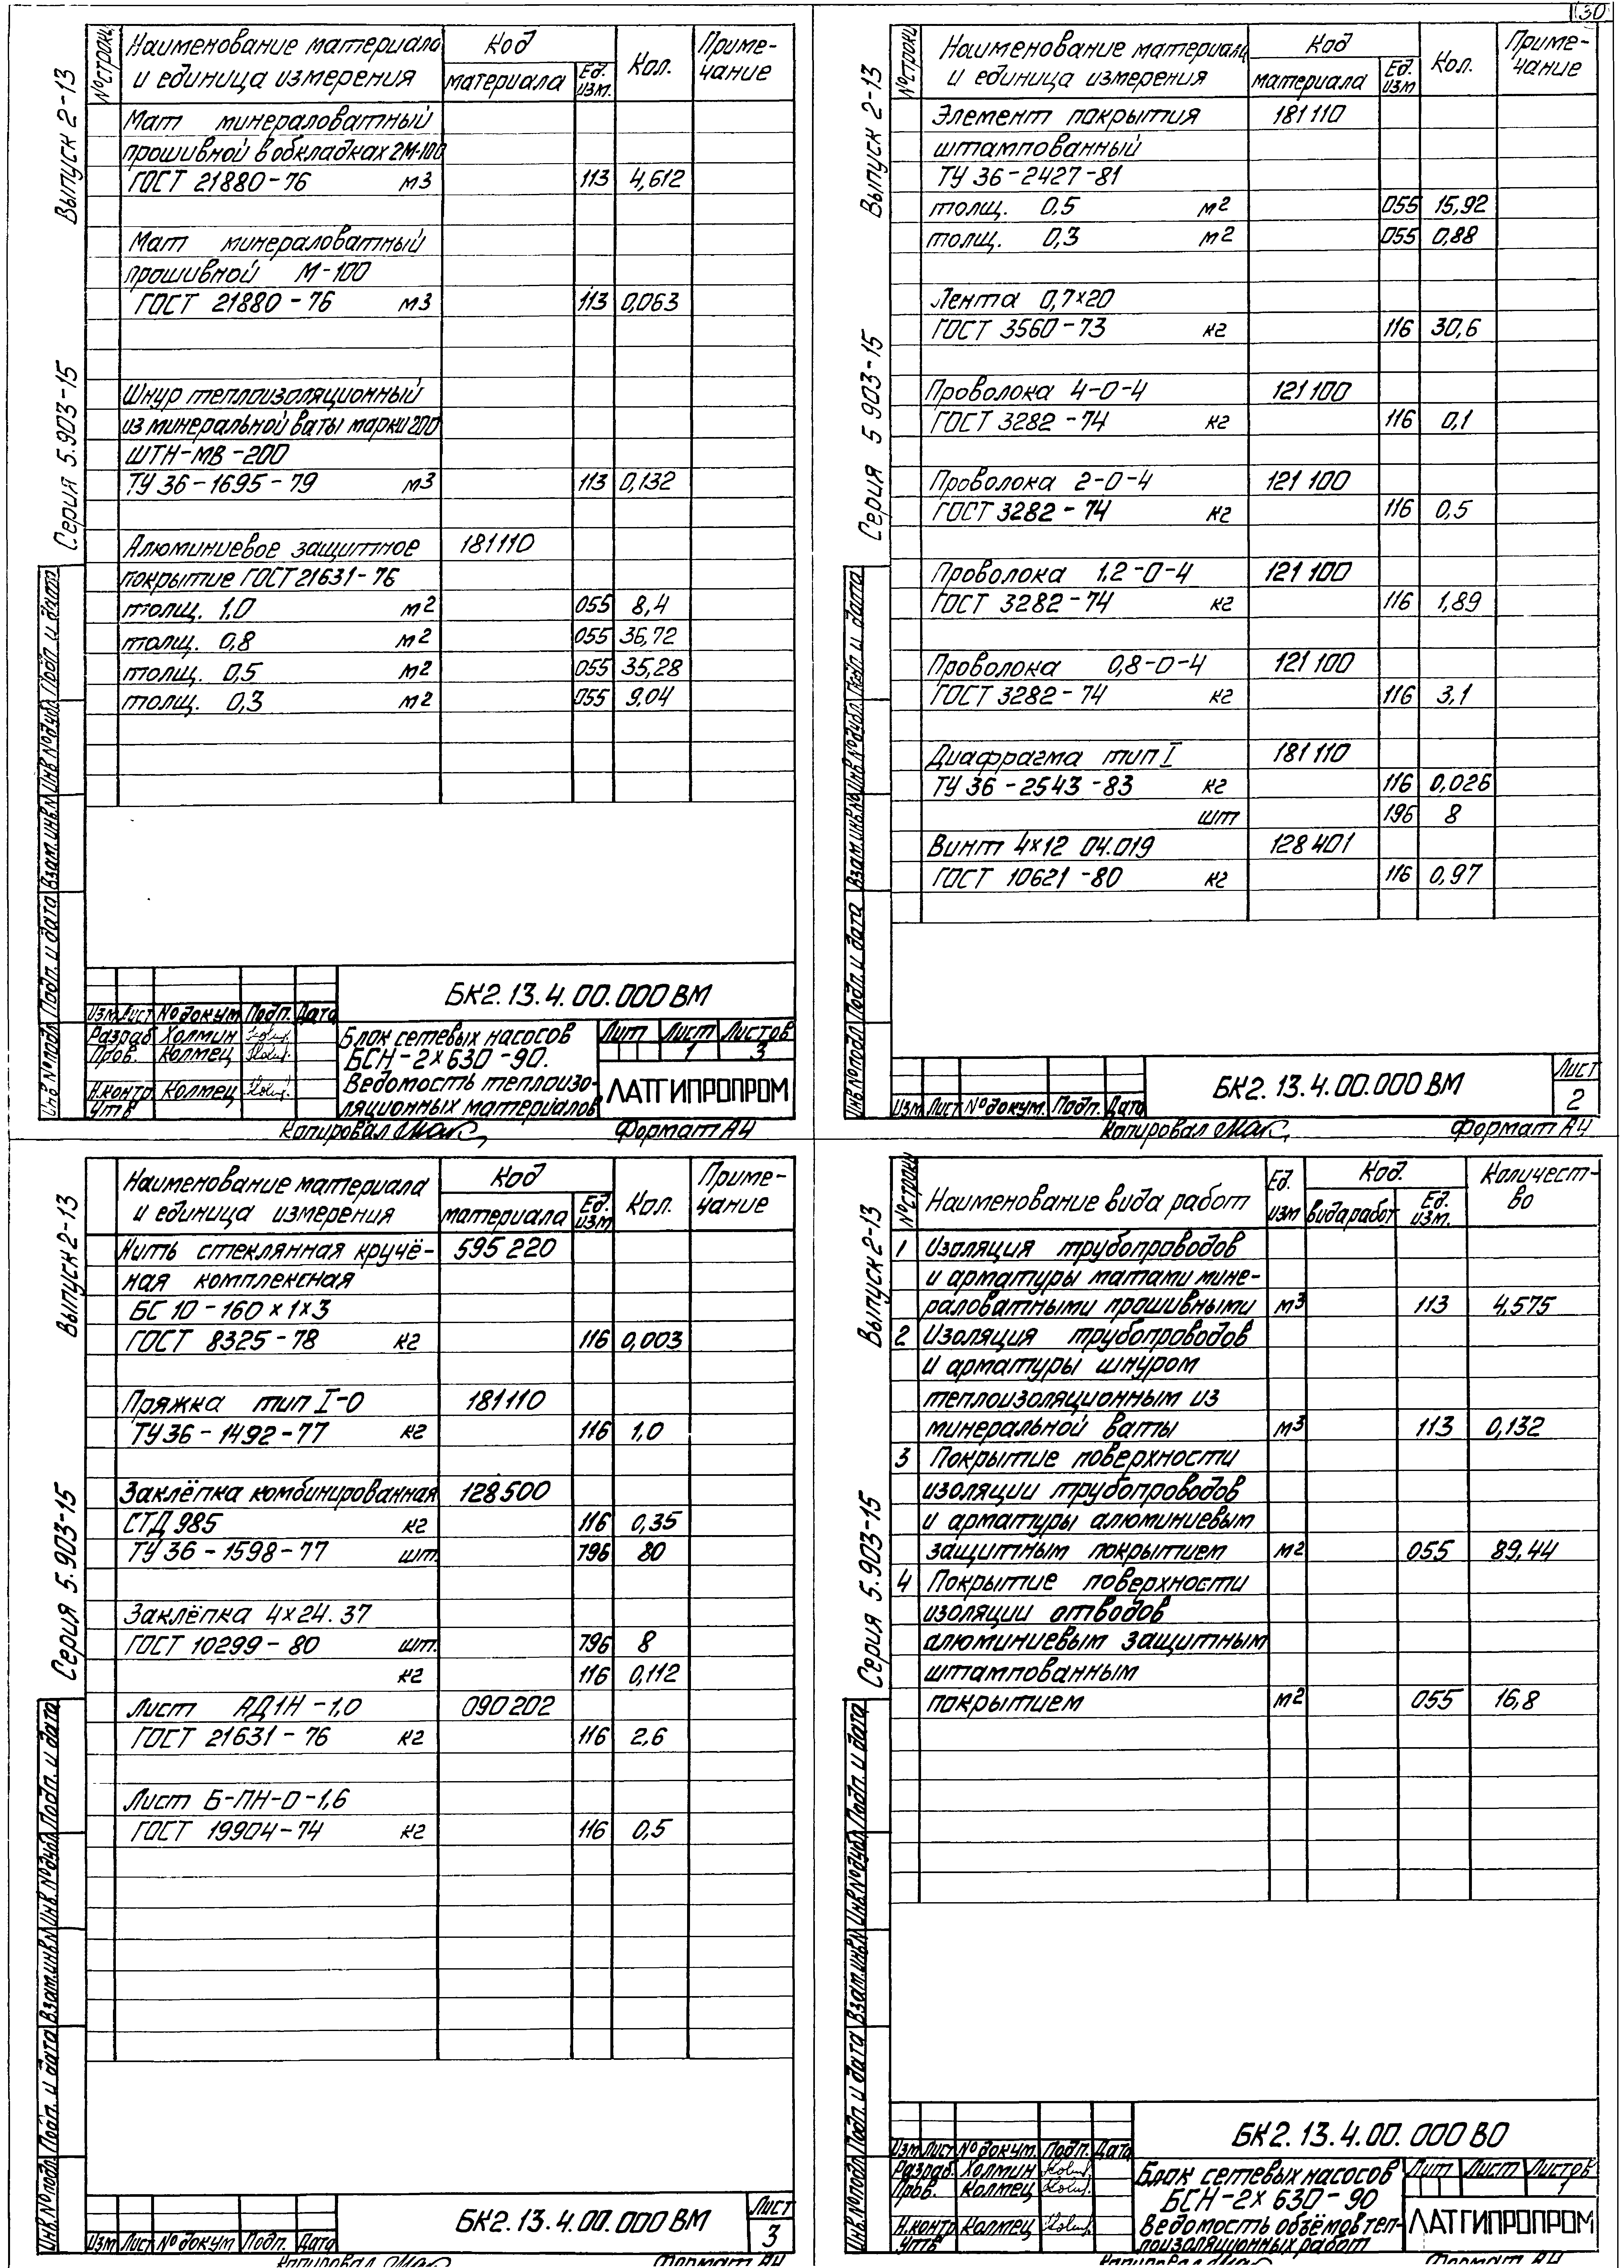 30
Выпуск 2-13
Серия 5.903-15
№ строки
Наименование материала
и единица измерения
Код
материала
Ед. изм.
Кол.
Приме-
чание
Мат минераловатный
прошивной в обкладках 2М-100
ГОСТ 21880-76 м3 113 4,612
Мат минераловатный
прошивной М-100
ГОСТ 21880-76 м3 113 0,063
Шнур теплоизоляционный
из минеральной ваты марки 200
ШТН-МВ-200
ТУ 36-1695-79 м3 113 0,132
Алюминиевое защитное 181110
покрытие ГОСТ 21631-76
толщ. 1.0 м2 055 8,4
толщ. 0,8 м2 055 36,72
толщ. 0,5 м2 055 35,28
толщ. 0,3 м2 055 9,04
Инв № подл Подп. и дата Взам. инв. № Инв № дубл. Подп. и дата
БК2.13.4.00.000 ВМ
Изм Лист № докум Подп. Дата
Разраб Холмин
Пров. Колмец
Н.контр Колмец
Утв
Блок сетевых насосов
БСН-2×630-90.
Ведомость теплоизо-
ляционных материалов
Лит Лист Листов
1 3
ЛАТГИПРОПРОМ
Копировал Формат А4
Выпуск 2-13
Серия 5 903-15
№ строки
Наименование материала
и единица измерения
Код
материала
Ед. изм
Кол.
Приме-
чание
Элемент покрытия 181110
штампованный
ТУ 36-2427-81
толщ. 0.5 м2 055 15,92
толщ. 0,3 м2 055 0,88
Лента 0,7×20
ГОСТ 3560-73 кг 116 30,6
Проволока 4-0-4 121100
ГОСТ 3282-74 кг 116 0,1
Проволока 2-0-4 121 100
ГОСТ 3282-74 кг 116 0,5
Проволока 1.2-0-4 121 100
ГОСТ 3282-74 кг 116 1,89
Проволока 0,8-0-4 121 100
ГОСТ 3282-74 кг 116 3,1
Диафрагма тип I 181 110
ТУ 36-2543-83 кг 116 0,026
шт 196 8
Винт 4×12 04.019 128 401
ГОСТ 10621-80 кг 116 0,97
Инв № подл Подп. и дата Взам. инв. № Инв № дубл. Подп. и дата
Изм Лист № докум. Подп. Дата
БК2.13.4.00.000 ВМ
Лист
2
Копировал Формат А4
Выпуск 2-13
Серия 5.903-15
Наименование материала
и единица измерения
Код
материала
Ед. изм
Кол.
Приме-
чание
Нить стеклянная кручё- 595 220
ная комплексная
БС 10-160×1×3
ГОСТ 8325-78 кг 116 0,003
Пряжка тип I-0 181110
ТУ 36-1492-77 кг 116 1,0
Заклёпка комбинированная 128500
СТД 985 кг 116 0,35
ТУ 36-1598-77 шт. 796 80
Заклёпка 4×24.37
ГОСТ 10299-80 шт. 796 8
кг 116 0,112
Лист АД1Н-1,0 090202
ГОСТ 21631-76 кг 116 2,6
Лист Б-ПН-0-1,6
ГОСТ 19904-74 кг 116 0,5
Инв. № подл Подп. и дата Взам. инв № Инв № дубл. Подп. и дата
Изм Лист № докум Подп. Дата
БК2.13.4.00.000 ВМ
Лист
3
Копировал Формат А4
Выпуск 2-13
Серия 5.903-15
№ строки
Наименование вида работ
Ед. изм
Код.
вида работ
Ед. изм.
Количест-
во
1 Изоляция трубопроводов
и арматуры матами мине-
раловатными прошивными м3 113 4,575
2 Изоляция трубопроводов
и арматуры шнуром
теплоизоляционным из
минеральной ваты м3 113 0,132
3 Покрытие поверхности
изоляции трубопроводов
и арматуры алюминиевым
защитным покрытием м2 055 89,44
4 Покрытие поверхности
изоляции отводов
алюминиевым защитным
штампованным
покрытием м2 055 16,8
Инв. № подл Подп. и дата Взам. инв № Инв № дубл. Подп. и дата
БК2.13.4.00.000 ВО
Изм Лист № докум. Подп. Дата
Разраб. Холмин
Пров. Колмец
Н.контр Колмец
Утв
Блок сетевых насосов
БСН-2×630-90
Ведомость объёмов теп-
лоизоляционных работ
Лит Лист Листов
1
ЛАТГИПРОПРОМ
Копировал Формат А4